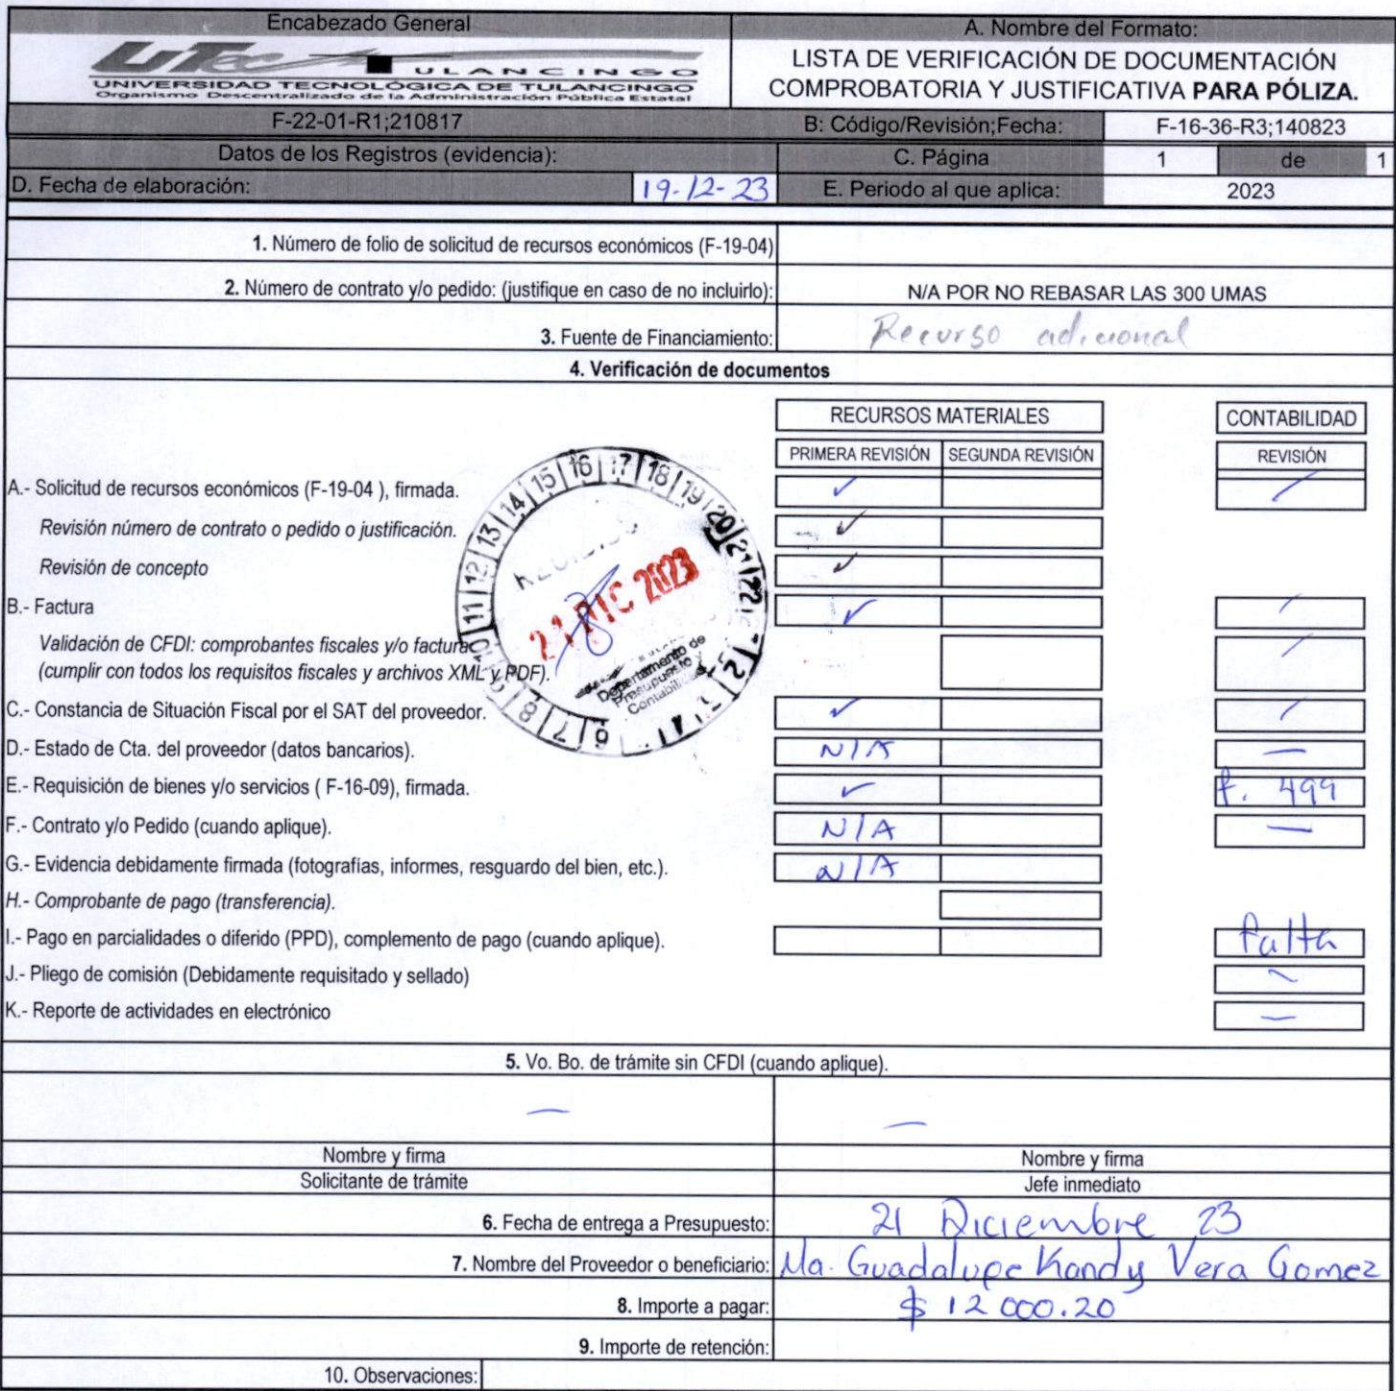 Encabezado General
A. Nombre del Formato:
UTec TULANCINGO
UNIVERSIDAD TECNOLÓGICA DE TULANCINGO
Organismo Descentralizado de la Administración Pública Estatal
LISTA DE VERIFICACIÓN DE DOCUMENTACIÓN
COMPROBATORIA Y JUSTIFICATIVA PARA PÓLIZA.
F-22-01-R1;210817
B: Código/Revisión;Fecha:
F-16-36-R3;140823
Datos de los Registros (evidencia):
C. Página
1 de 1
D. Fecha de elaboración:
19-12-23
E. Periodo al que aplica:
2023
1. Número de folio de solicitud de recursos económicos (F-19-04)
2. Número de contrato y/o pedido: (justifique en caso de no incluirlo):
N/A POR NO REBASAR LAS 300 UMAS
3. Fuente de Financiamiento:
Recurso adicional
4. Verificación de documentos
RECURSOS MATERIALES
CONTABILIDAD
PRIMERA REVISIÓN
SEGUNDA REVISIÓN
REVISIÓN
A.- Solicitud de recursos económicos (F-19-04 ), firmada.
Revisión número de contrato o pedido o justificación.
Revisión de concepto
B.- Factura
Validación de CFDI: comprobantes fiscales y/o factura
(cumplir con todos los requisitos fiscales y archivos XML y PDF).
C.- Constancia de Situación Fiscal por el SAT del proveedor.
D.- Estado de Cta. del proveedor (datos bancarios).
N/A
E.- Requisición de bienes y/o servicios ( F-16-09), firmada.
f. 499
F.- Contrato y/o Pedido (cuando aplique).
N/A
G.- Evidencia debidamente firmada (fotografías, informes, resguardo del bien, etc.).
N/A
H.- Comprobante de pago (transferencia).
I.- Pago en parcialidades o diferido (PPD), complemento de pago (cuando aplique).
Falta
J.- Pliego de comisión (Debidamente requisitado y sellado)
K.- Reporte de actividades en electrónico
6 7 8 10 11 12 13 14 15 16 17 18 19 20 21 22
21 DIC 2023
Departamento de
Presupuesto y
Contabilidad
5. Vo. Bo. de trámite sin CFDI (cuando aplique).
Nombre y firma
Solicitante de trámite
Nombre y firma
Jefe inmediato
6. Fecha de entrega a Presupuesto:
21 Diciembre 23
7. Nombre del Proveedor o beneficiario:
Ma. Guadalupe Kandy Vera Gomez
8. Importe a pagar:
$ 12 000.20
9. Importe de retención:
10. Observaciones: